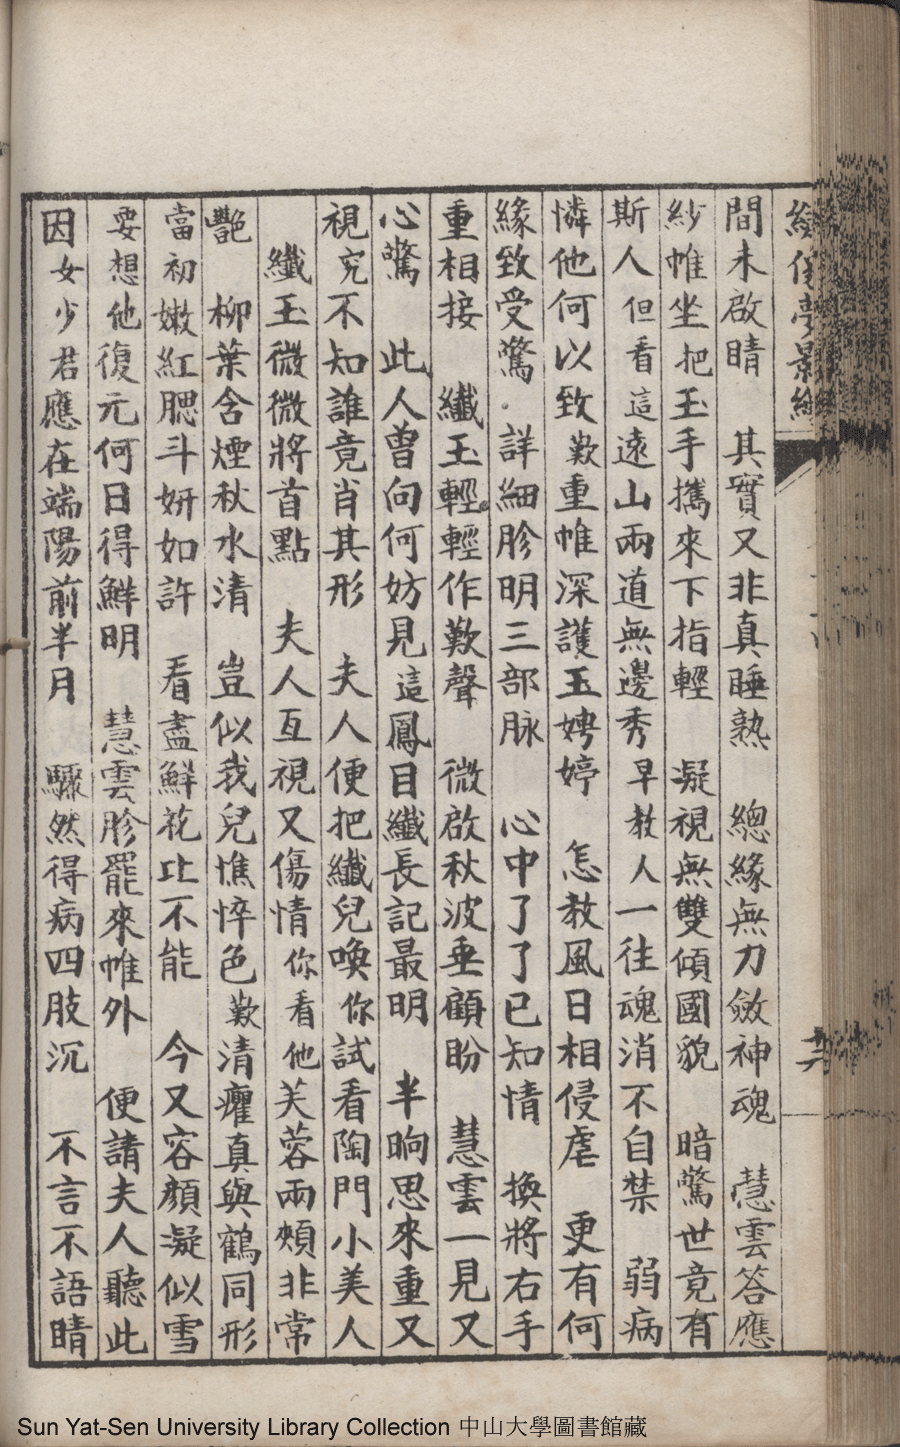 間未啟睛　其實又非真睡熟　總緣無刀斂神魂　慧雲答應
紗帷坐把玉手攜來下指輕　凝視無雙傾國貌　暗驚世竟有
斯人但看這遠山兩道無邊秀早教人一往魂消不自禁　弱病
憐他何以致歎重帷深護玉娉婷　怎教風日相侵虐　更有何
緣致受驚．詳細胗明三部脉　心中了了已知情　換將右手
重相接　纖玉輕輕作歎聲　微啟秋波垂顧盼　慧雲一見又
心驚　此人曾向何妨見這鳳目纖長記最明　半晌思來重又
視究不知誰竟肖其形　夫人便把纖兒喚你試看陶門小美人
纖玉微微將首點　夫人互視又傷情你看他芙蓉兩頰非常
艷　柳葉含煙秋水清　豈似我兒憔悴色歎清癯真與鶴同形
當初嫩紅腮斗妍如許　看盡鮮花比不能　今又容顏凝似雪
要想他復元何日得鮮明　慧雲胗罷來帷外　便請夫人聽此
因女少君應在端陽前半月　驟然得病四肢沉　不言不語睛
Sun Yat-Sen University Library Collection 中山大學圖書館藏